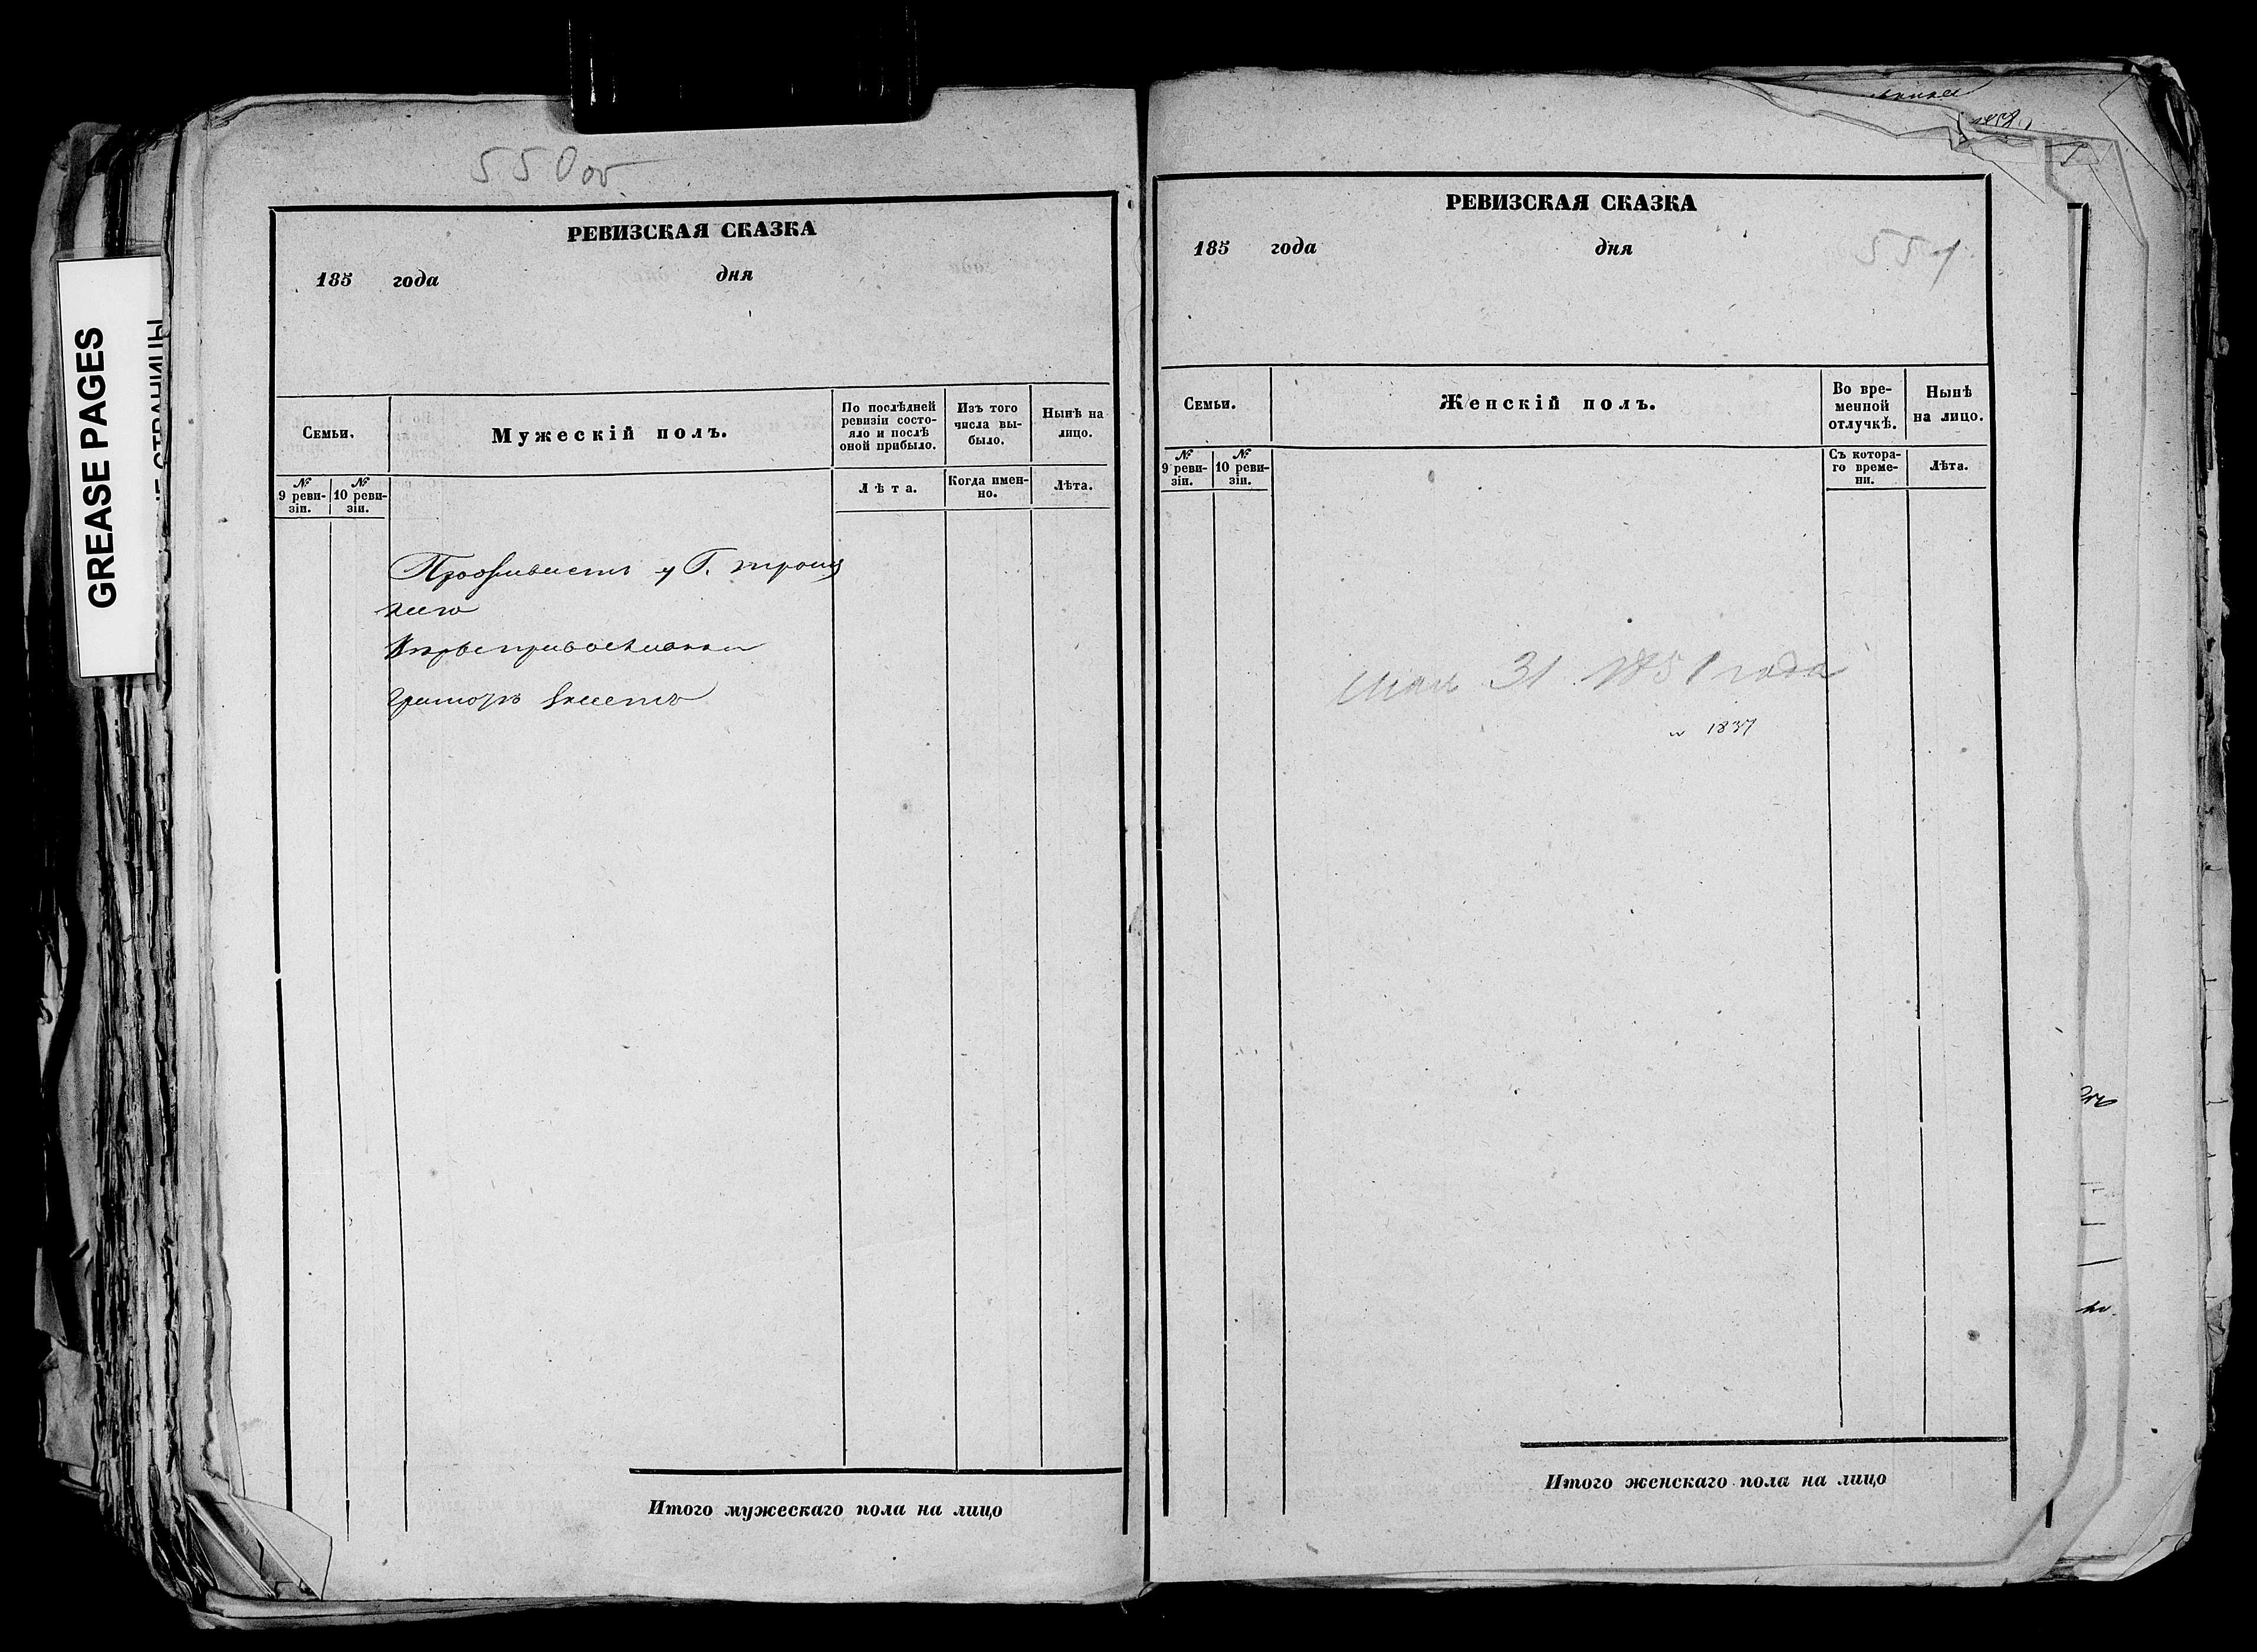 GREASE PAGES
550об
РЕВИЗСКАЯ СКАЗКА
185 года дня
Семьи.
Мужескій полъ.
По послѣдней ревизіи состо-
яло и послѣ
оной прибыло.
Изъ того
числа вы-
было.
Нынѣ на
лицо.
№
9 реви-
зіи.
№
10 реви-
зіи.
Лѣта.
Когда имен-
но.
Лѣта.
Проживаетъ у Г.
Итого мужескаго пола на лицо
РЕВИЗСКАЯ СКАЗКА
185 года дня
551
Семьи.
Женскій полъ.
Во вре-
менной
отлучкѣ.
Нынѣ
на лицо.
№
9 реви-
зіи.
№
10 реви-
зіи.
Съ котора-
го време-
ни.
Лѣта.
Мая 31 1851 года
1837
Итого женскаго пола на лицо